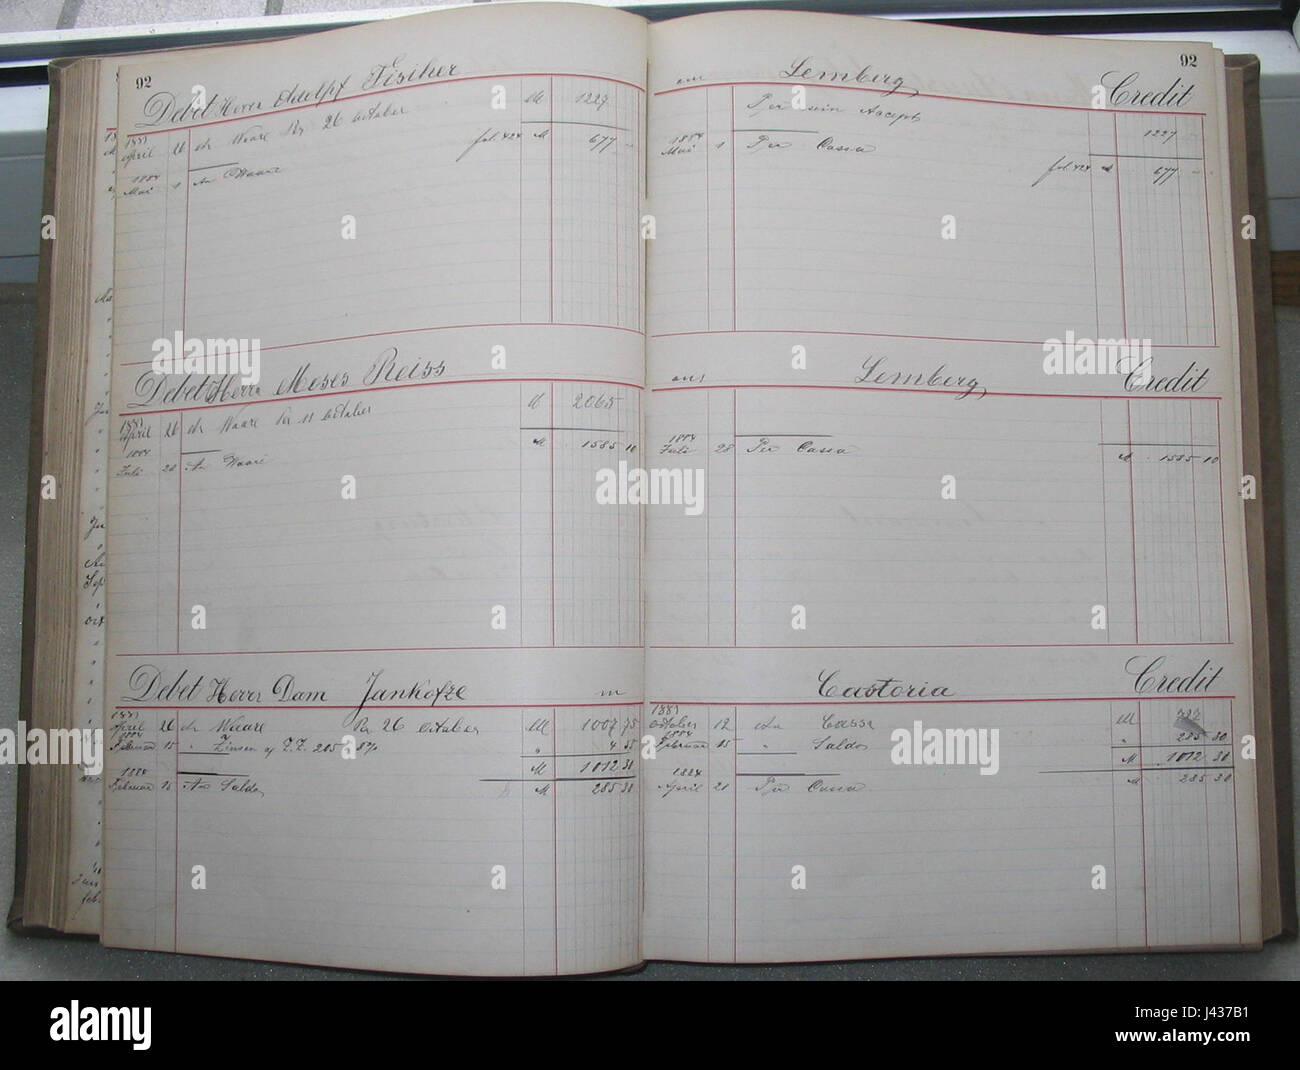 92
Debet Herrn Adolpf Fisiker
1883
April 26 An Waare Per 26 October M 1227
1884
Mai 1 An Waare fol. 424 M 677
Debet Herrn Moses Reiss
1883
April 26 An Waare Per 11 October M 2065
1884
Juli 28 An Waare M 1585 10
Debet Herrn Dam Jankofze in
1883
April 26 An Waare Per 26 October M 1007 75
1884
Februar 15 " Zinsen a/ 285 8% " 4 55
M 1012 30
1884
Februar 15 An Saldo M 285 30
92
aus Lemberg Credit
Per sein Accept 1227
1884
Mai 1 Per Cassa fol. 424 M 677
aus Lemberg Credit
1884
Juli 28 Per Cassa M 1585 10
Castoria Credit
1883
October 12 Cassa M 727
1884
Februar 15 " Saldo " 285 30
M 1012 30
1884
April 21 Per Cassa M 285 30
alamy
a alamy
Image ID: J437B1
www.alamy.com